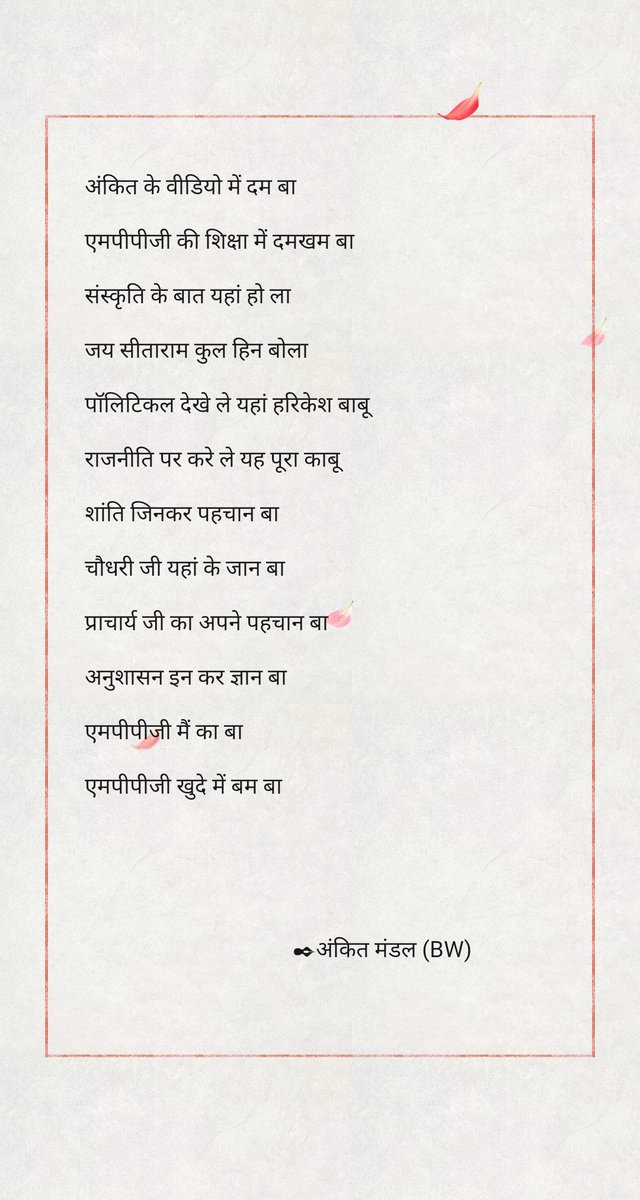 अंकित के वीडियो में दम बा
एमपीपीजी की शिक्षा में दमखम बा
संस्कृति के बात यहां हो ला
जय सीताराम कुल हिन बोला
पॉलिटिकल देखे ले यहां हरिकेश बाबू
राजनीति पर करे ले यह पूरा काबू
शांति जिनकर पहचान बा
चौधरी जी यहां के जान बा
प्राचार्य जी का अपने पहचान बा
अनुशासन इन कर ज्ञान बा
एमपीपीजी मैं का बा
एमपीपीजी खुदे में बम बा
✒️अंकित मंडल (BW)